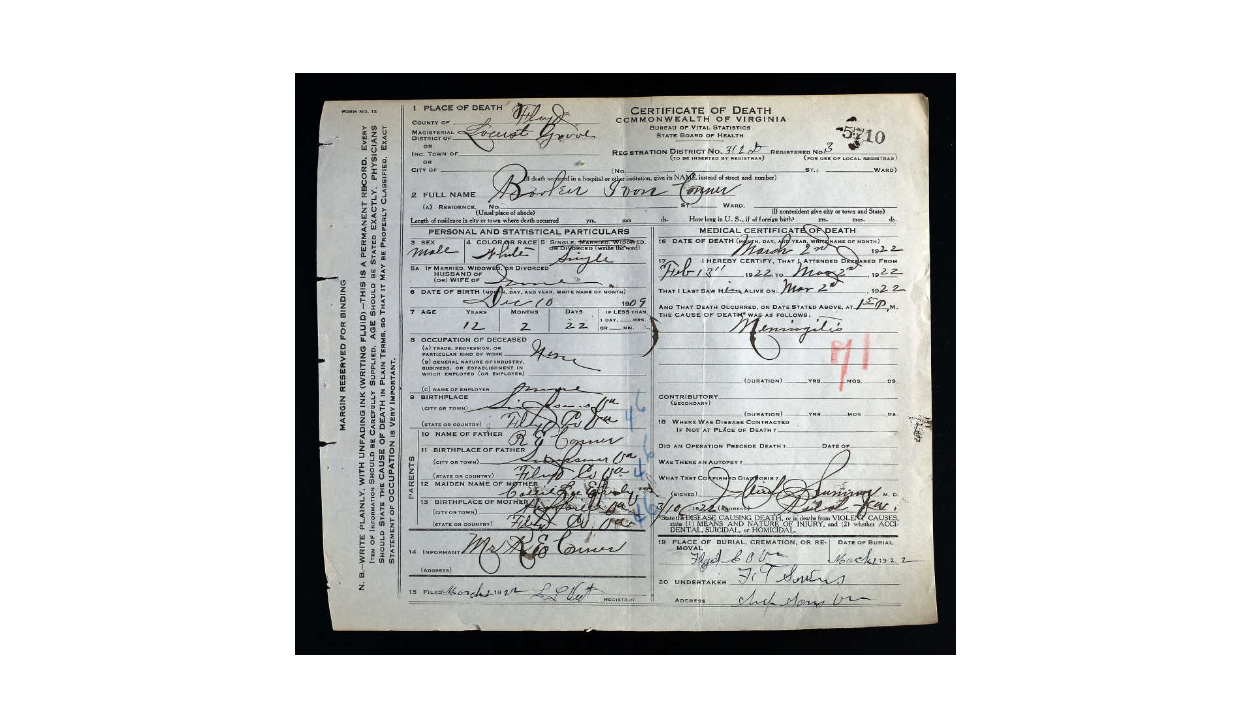 FORM NO. 12
MARGIN RESERVED FOR BINDING
N. B.—WRITE PLAINLY, WITH UNFADING INK (WRITING FLUID)—THIS IS A PERMANENT RECORD. EVERY
ITEM OF INFORMATION SHOULD BE CAREFULLY SUPPLIED. AGE SHOULD BE STATED EXACTLY. PHYSICIANS
SHOULD STATE THE CAUSE OF DEATH IN PLAIN TERMS, SO THAT IT MAY BE PROPERLY CLASSIFIED. EXACT
STATEMENT OF OCCUPATION IS VERY IMPORTANT.
1 PLACE OF DEATH
COUNTY OF Floyd
MAGISTERIAL
DISTRICT OF Locust Grove
OR
INC. TOWN OF
OR
CITY OF
CERTIFICATE OF DEATH
COMMONWEALTH OF VIRGINIA
BUREAU OF VITAL STATISTICS
STATE BOARD OF HEALTH
5710
REGISTRATION DISTRICT NO. REGISTERED NO. 3
(TO BE INSERTED BY REGISTRAR) (FOR USE OF LOCAL REGISTRAR)
(NO. ST.; WARD)
(If death occurred in a hospital or other institution, give its NAME instead of street and number)
2 FULL NAME Conner
(A) RESIDENCE. No. ST. WARD.
(Usual place of abode) (If nonresident give city or town and State)
Length of residence in city or town where death occurred yrs. mos. ds. How long in U. S., if of foreign birth? yrs. mos. ds.
PERSONAL AND STATISTICAL PARTICULARS
3 SEX 4 COLOR OR RACE 5 SINGLE, MARRIED, WIDOWED,
OR DIVORCED (write the word)
male White Single
5A IF MARRIED, WIDOWED, OR DIVORCED
HUSBAND OF
(OR) WIFE OF
6 DATE OF BIRTH (MONTH, DAY, AND YEAR, WRITE NAME OF MONTH)
Dec 10 1909
7 AGE YEARS MONTHS DAYS IF LESS THAN
1 DAY, HRS.
12 2 22 OR MIN.
8 OCCUPATION OF DECEASED
(A) TRADE, PROFESSION, OR
PARTICULAR KIND OF WORK None
(B) GENERAL NATURE OF INDUSTRY,
BUSINESS, OR ESTABLISHMENT IN
WHICH EMPLOYED (OR EMPLOYER)
(C) NAME OF EMPLOYER
9 BIRTHPLACE
(CITY OR TOWN) Va
(STATE OR COUNTRY) Floyd Co Va
46
PARENTS
10 NAME OF FATHER R E Conner
11 BIRTHPLACE OF FATHER
(CITY OR TOWN) Va
(STATE OR COUNTRY) Floyd Co Va
46
12 MAIDEN NAME OF MOTHER
13 BIRTHPLACE OF MOTHER
(CITY OR TOWN) Va
(STATE OR COUNTRY) Floyd Co Va
46
14 INFORMANT Mr R E Conner
(ADDRESS)
15 FILED March 1922
REGISTRAR
MEDICAL CERTIFICATE OF DEATH
16 DATE OF DEATH (MONTH, DAY, AND YEAR, WRITE NAME OF MONTH)
March 2nd 1922
17 I HEREBY CERTIFY, THAT I ATTENDED DECEASED FROM
Feb 13", 1922 TO Mar 2nd, 1922
THAT I LAST SAW Him ALIVE ON Mar 2nd, 1922
AND THAT DEATH OCCURRED, ON DATE STATED ABOVE, AT P. M.
THE CAUSE OF DEATH* WAS AS FOLLOWS:
Meningitis
71
(DURATION) YRS. MOS. DS.
CONTRIBUTORY
(SECONDARY)
(DURATION) YRS. MOS. DS.
18 WHERE WAS DISEASE CONTRACTED
IF NOT AT PLACE OF DEATH?
DID AN OPERATION PRECEDE DEATH? DATE OF
WAS THERE AN AUTOPSY?
WHAT TEST CONFIRMED DIAGNOSIS?
(SIGNED) M. D.
3/10, 1922 (ADDRESS)
*State the DISEASE CAUSING DEATH, or in deaths from VIOLENT CAUSES,
state (1) MEANS AND NATURE OF INJURY, and (2) whether ACCI-
DENTAL, SUICIDAL, or HOMICIDAL.
19 PLACE OF BURIAL, CREMATION, OR RE- DATE OF BURIAL
MOVAL
Floyd Co Va March 1922
20 UNDERTAKER
ADDRESS Va